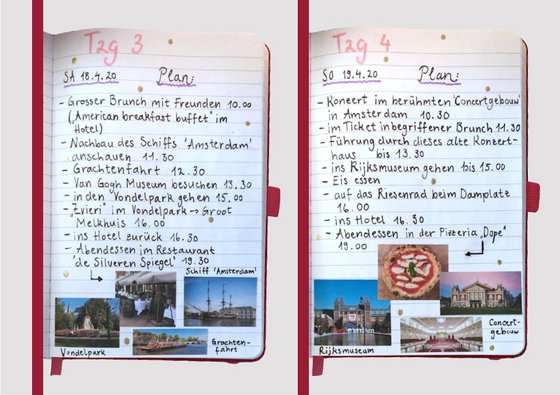 Tag 3
SA 18.4.20 Plan:
- Grosser Brunch mit Freunden 10.00
("American breakfast buffet" im
Hotel)
- Nachbau des Schiffs 'Amsterdam'
anschauen 11.30
- Grachtenfahrt 12.30
- Van Gogh Museum besuchen 13.30
- in den Vondelpark gehen 15.00
- "Zvieri" im Vondelpark → Groot
Melkhuis 16.00
- ins Hotel zurück 16.30
- Abendessen im Restaurant
'de Silveren Spiegel' 19.30
Schiff 'Amsterdam'
Vondelpark
Grachten-
fahrt
Tag 4
SO 19.4.20 Plan:
- Konzert im berühmten 'Concertgebouw'
in Amsterdam 10.30
- im Ticket inbegriffener Brunch 11.30
- Führung durch dieses alte Konzert-
haus bis 13.30
- ins Rijksmuseum gehen bis 15.00
- Eis essen
- auf das Riesenrad beim Damplatz
16.00
- ins Hotel 16.30
- Abendessen in der Pizzeria "Dope"
19.00
Rijksmuseum
Concert-
gebouw